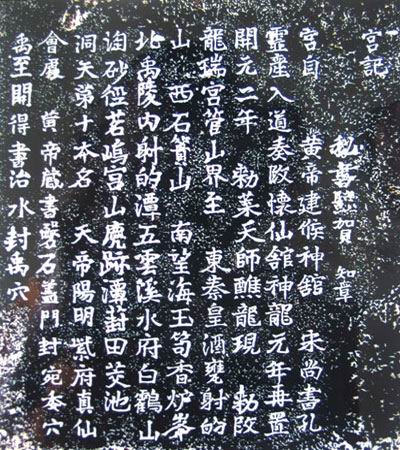 宫記
秘書監賀 知章
宫自 黄帝建候神舘 宋尚書孔
靈産入道奏改懷仙舘神龍元年再置
開元二年 勅葉天師醮龍現 勅改
龍瑞宫管山界至 東秦皇酒甕射的
山 西石簣山 南望海玉笥香炉峯
北禹陵内射的潭五雲溪水府白鶴山
淘砂徑茗嶋宫山鹿跡潭葑田茭池
洞天第十本名 天帝陽明紫府真仙
會處 黄帝藏書磐石盖門封宛委穴
禹至開得書治水封禹穴